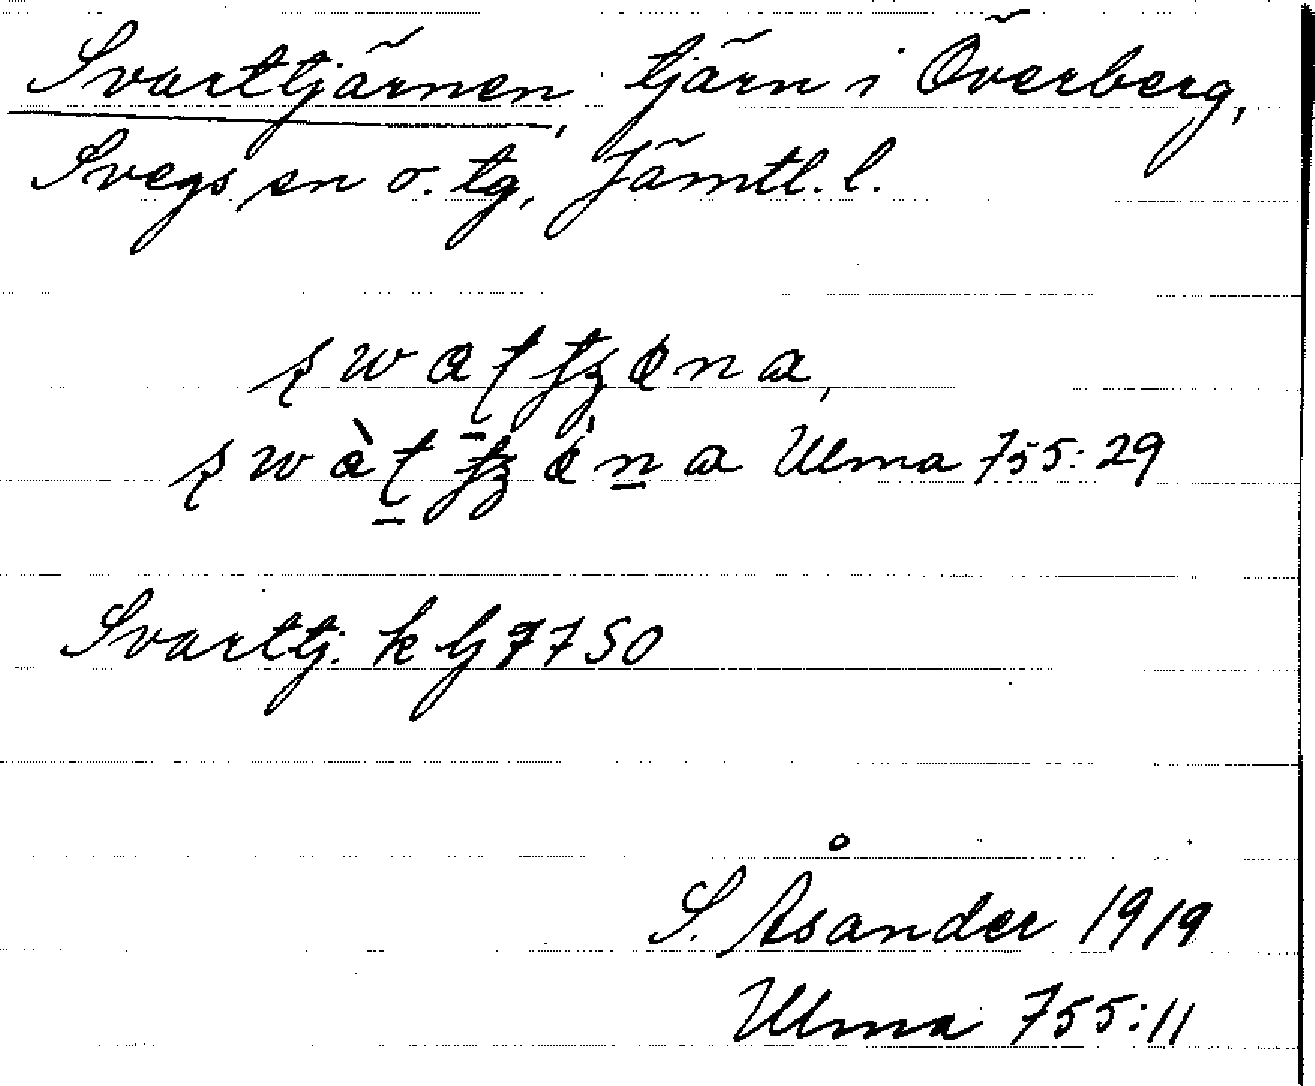 Svarttjärnen, tjärn i Överberg,
Svegs sn o. tg, Jämtl. l.
Ulma 755:29
Svarttj. k bj 7750
S. Åsander 1919
Ulma 755:11